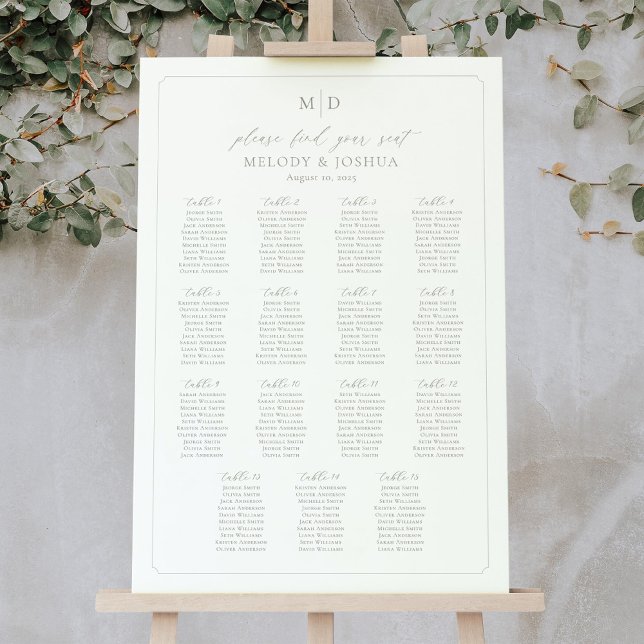 M|D
please find your seat
MELODY & JOSHUA
August 10, 2025
table 1
Jeorge Smith
Olivia Smith
Jack Anderson
Sarah Anderson
David Williams
Michelle Smith
Liana Williams
Seth Williams
Kristen Anderson
Oliver Anderson
table 2
Kristen Anderson
Oliver Anderson
Michelle Smith
Jeorge Smith
Olivia Smith
Seth Williams
Jack Anderson
Sarah Anderson
Liana Williams
David Williams
table 3
Jeorge Smith
Olivia Smith
Seth Williams
Kristen Anderson
Oliver Anderson
David Williams
Michelle Smith
Jack Anderson
Sarah Anderson
Liana Williams
table 4
Kristen Anderson
Oliver Anderson
David Williams
Liana Williams
Michelle Smith
Jeorge Smith
Olivia Smith
Jack Anderson
Sarah Anderson
Seth Williams
table 5
Kristen Anderson
Oliver Anderson
Michelle Smith
Jeorge Smith
Olivia Smith
Jack Anderson
Sarah Anderson
Liana Williams
Seth Williams
David Williams
table 6
Jeorge Smith
Olivia Smith
Jack Anderson
Sarah Anderson
David Williams
Michelle Smith
Liana Williams
Seth Williams
Kristen Anderson
Oliver Anderson
table 7
David Williams
Michelle Smith
Jeorge Smith
Olivia Smith
Kristen Anderson
Oliver Anderson
Liana Williams
Seth Williams
Jack Anderson
Sarah Anderson
table 8
Jeorge Smith
Olivia Smith
Seth Williams
Kristen Anderson
Oliver Anderson
David Williams
Michelle Smith
Jack Anderson
Sarah Anderson
Liana Williams
table 9
Sarah Anderson
David Williams
Michelle Smith
Liana Williams
Seth Williams
Kristen Anderson
Oliver Anderson
Jeorge Smith
Olivia Smith
Jack Anderson
table 10
Jack Anderson
Sarah Anderson
Liana Williams
David Williams
Seth Williams
Kristen Anderson
Oliver Anderson
Michelle Smith
Jeorge Smith
Olivia Smith
table 11
Seth Williams
Kristen Anderson
Oliver Anderson
David Williams
Michelle Smith
Jack Anderson
Sarah Anderson
Liana Williams
Jeorge Smith
Olivia Smith
table 12
David Williams
Liana Williams
Michelle Smith
Jeorge Smith
Olivia Smith
Jack Anderson
Sarah Anderson
Seth Williams
Kristen Anderson
Oliver Anderson
table 13
Jeorge Smith
Olivia Smith
Jack Anderson
Sarah Anderson
David Williams
Michelle Smith
Liana Williams
Seth Williams
Kristen Anderson
Oliver Anderson
table 14
Kristen Anderson
Oliver Anderson
Michelle Smith
Jeorge Smith
Olivia Smith
Jack Anderson
Sarah Anderson
Liana Williams
Seth Williams
David Williams
table 15
Jeorge Smith
Olivia Smith
Seth Williams
Kristen Anderson
Oliver Anderson
David Williams
Michelle Smith
Jack Anderson
Sarah Anderson
Liana Williams